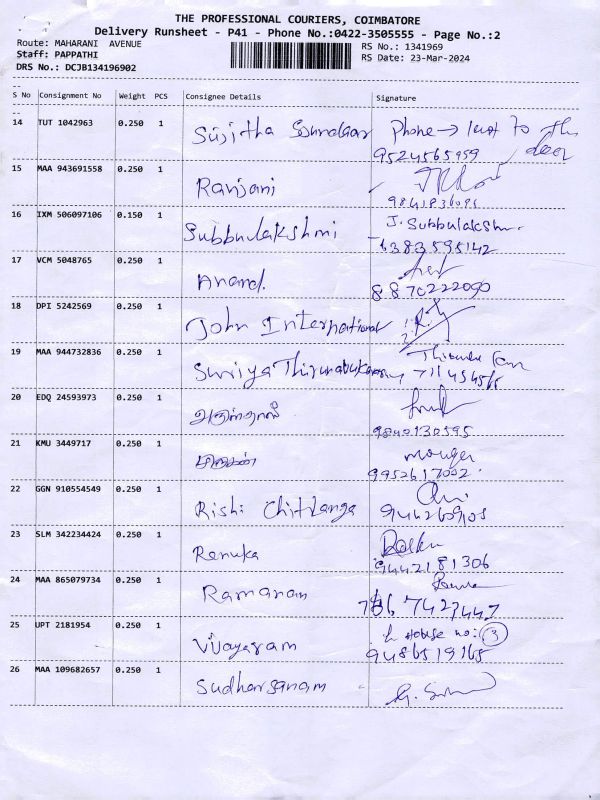 THE PROFESSIONAL COURIERS, COIMBATORE
Delivery Runsheet - P41 - Phone No.:0422-3505555 - Page No.:2
Route: MAHARANI AVENUE RS No.: 1341969
Staff: PAPPATHI RS Date: 23-Mar-2024
DRS No.: DCJB134196902
S No Consignment No Weight PCS Consignee Details Signature
14 TUT 1042963 0.250 1 Sujitha Phone → to the door
9524565959
15 MAA 943691558 0.250 1 Ranjani
16 IXM 506097106 0.150 1 Subbulakshmi J. Subbulakshmi
6383595142
17 VCM 5048765 0.250 1 Anand.
8870222090
18 DPI 5242569 0.250 1 John International
19 MAA 944732836 0.250 1 Suriya
20 EDQ 24593973 0.250 1
9840130595
21 KMU 3449717 0.250 1 முருகன்
9952617002
22 GGN 910554549 0.250 1 Rishi Chitlanga
23 SLM 342234424 0.250 1 Renuka
9442181306
24 MAA 865079734 0.250 1 Ramanam
25 UPT 2181954 0.250 1 Vijayaram House no: 3
9486519165
26 MAA 109682657 0.250 1 Sudharsanam